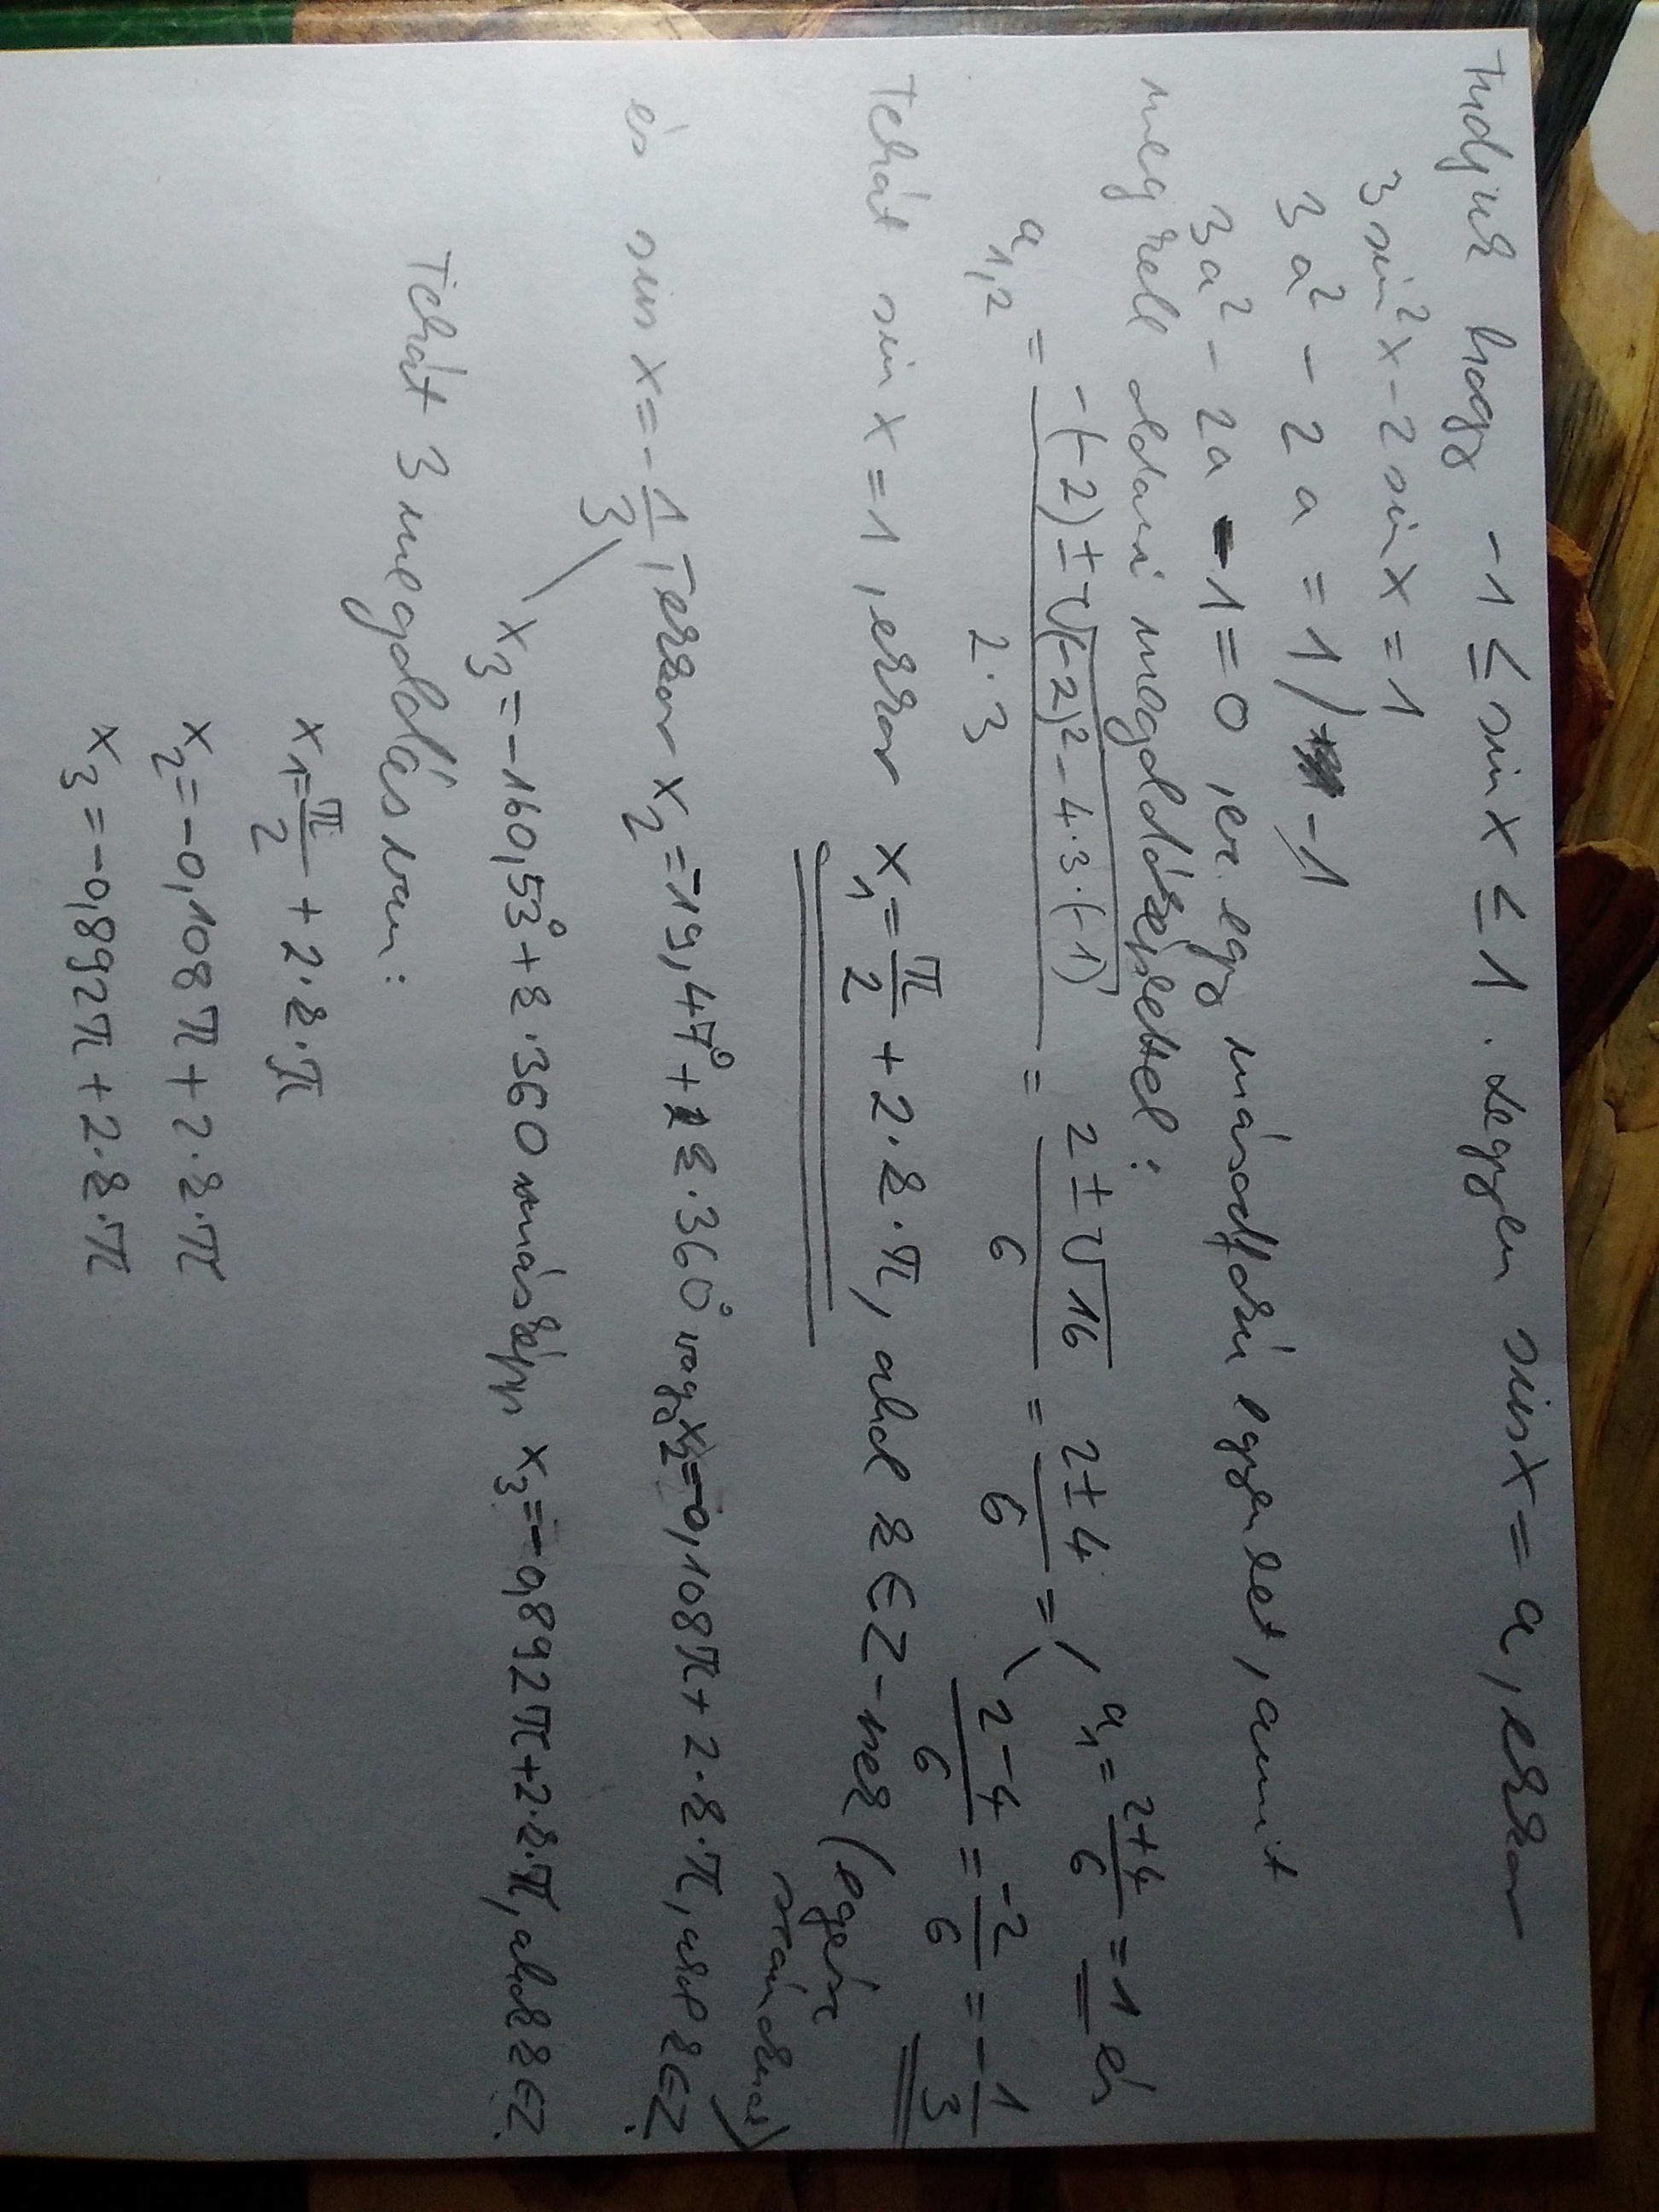 Tudjuk hogy -1 ≤ sin x ≤ 1. Legyen sin x = a, ekkor
3 sin² x - 2 sin x = 1
3a² - 2a = 1 / -1
3a² - 2a - 1 = 0, ez egy másodfokú egyenlet, amit
meg kell oldani megoldóképlettel:
a₁,₂ = (-(-2) ± √((-2)² - 4·3·(-1))) / (2·3) = (2 ± √16) / 6 = (2 ± 4) / 6 = / a₁ = (2+4)/6 = 1 és
\ (2-4)/6 = -2/6 = -1/3
Tehát sin x = 1, ekkor x₁ = π/2 + 2·k·π, ahol k ∈ Z-nek (egész
számoknak)
és sin x = -1/3, ekkor x₂ = -19,47° + k·360° vagy x₂ = -0,108π + 2·k·π, ahol k ∈ Z.
\ x₃ = -160,53° + k·360 másképp x₃ = -0,892π + 2·k·π, ahol k ∈ Z.
Tehát 3 megoldás van:
x₁ = π/2 + 2·k·π
x₂ = -0,108π + 2·k·π
x₃ = -0,892π + 2·k·π